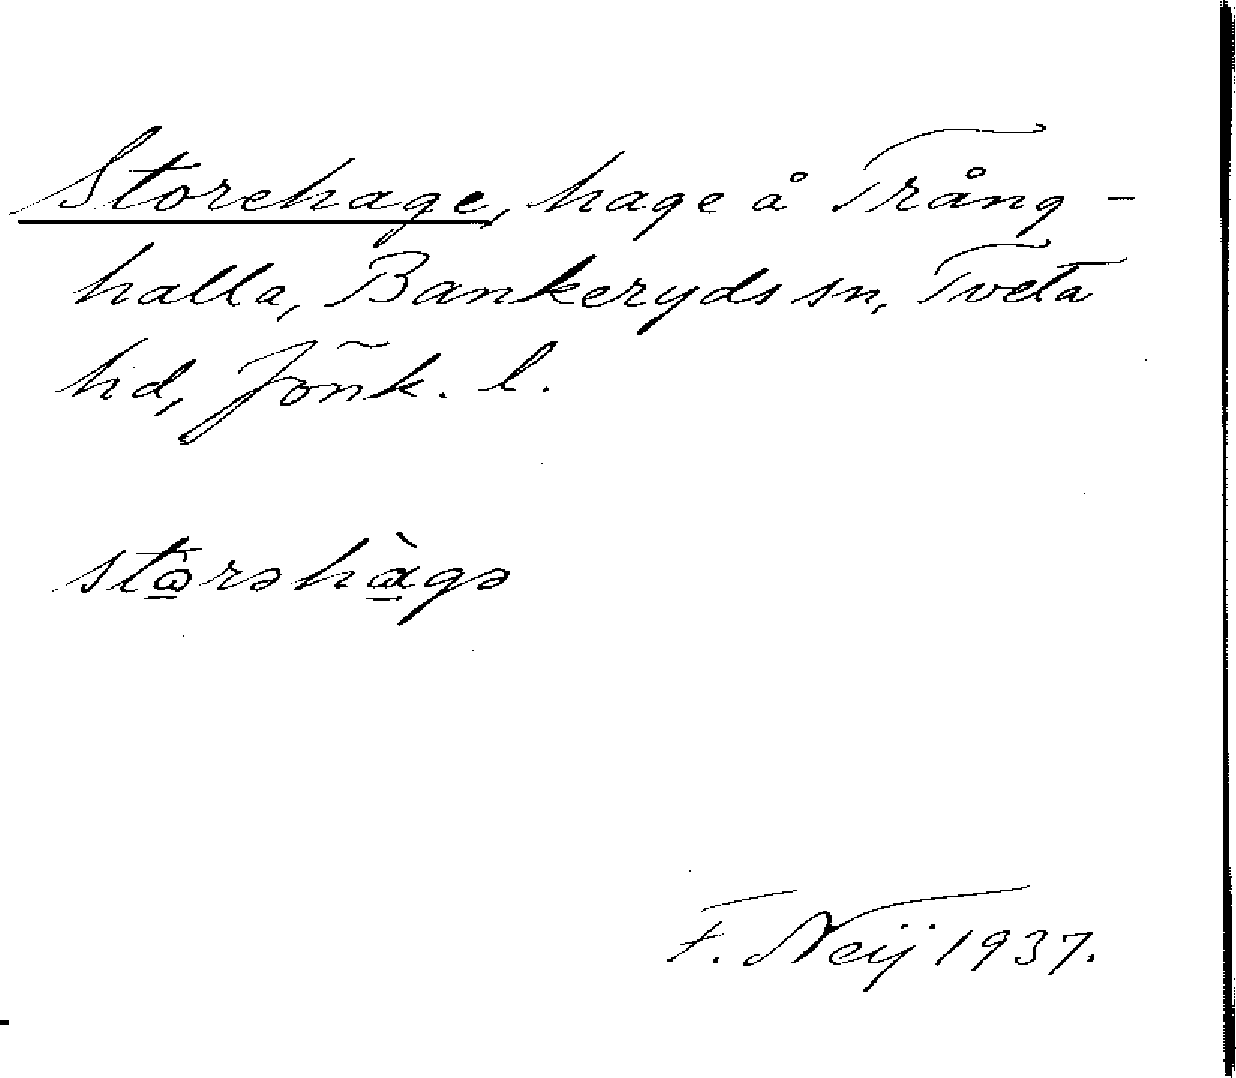 Storehage, hage å Trång-
halla, Bankeryds sn, Tveta
hd, Jönk. l.
stὼ̲rəhɑ̲̀gə
F. Neij 1937.